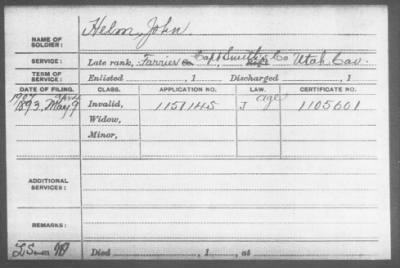 Helm, John
NAME OF SOLDIER:
SERVICE: Late rank, Farrier Co. Capt Smith's Co Utah Cav.
TERM OF SERVICE: Enlisted , 1 Discharged , 1
DATE OF FILING. CLASS. APPLICATION NO. LAW. CERTIFICATE NO.
1893, May 9 Invalid, 1151145 J age 1105601
Widow,
Minor,
ADDITIONAL SERVICES:
REMARKS:
Died , 1 , at